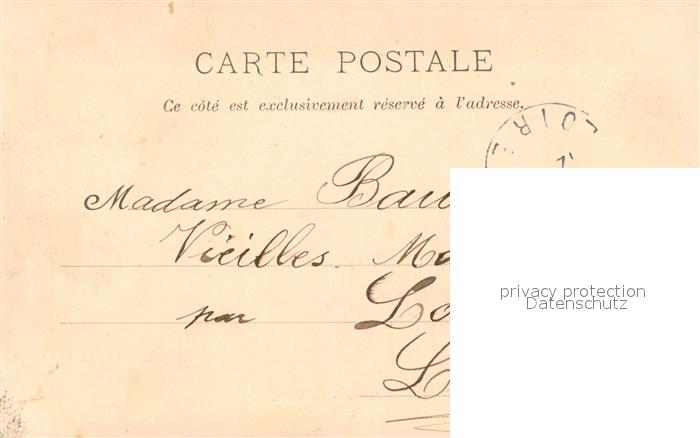 CARTE POSTALE
Ce côté est exclusivement réservé à l'adresse.
LOIR
Madame
Vieilles
par
privacy protection
Datenschutz